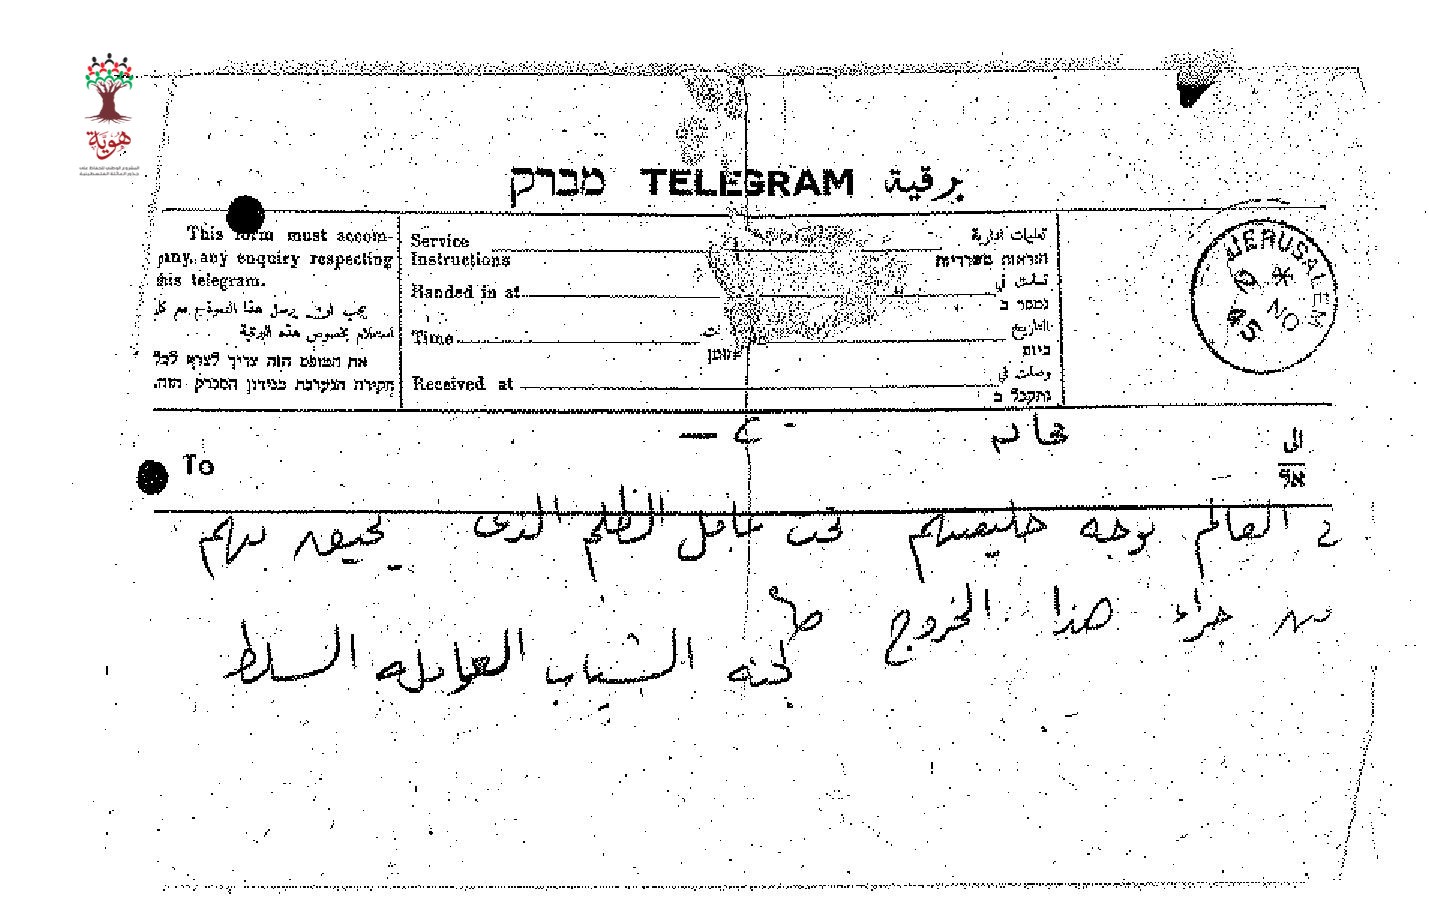 هويّة
מברק TELEGRAM برقية
This form must accompany any enquiry respecting this telegram.
يجب ان يرسل هذا النموذج مع كل
استعلام بخصوص هذه البرقية
את הטופס הזה צריך לצרף לכל
חקירת הנערכת בנידון המברק הזה.
Service Instructions
تعليمات ادارية
הוראות משרדיות
Handed in at
سلمت في
נמסר ב
Time
זמן
التاريخ
ביום
Received at
وصلت في
נתקבל ב
JERUSALEM
To
الى
אל
العالم بوجه خليفتهم تحت عامل الظلم الذي يحيق بهم
من جراء هذا الخروج
لجنه الشباب العامله السلط